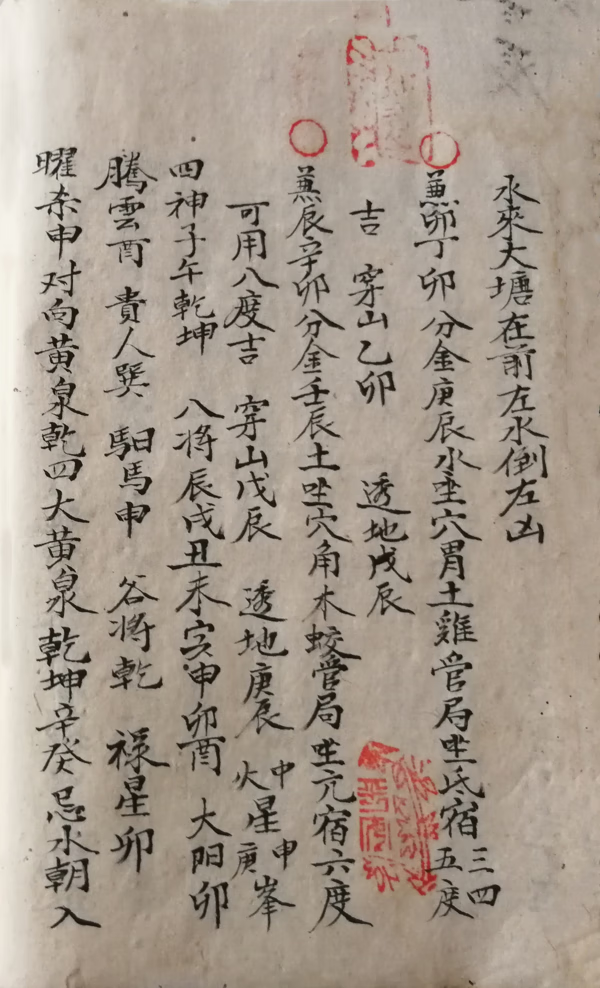 水來大塘在前左水倒左凶
兼卯丁卯分金庚辰水坐穴胃土雞管局坐氐宿三四五度
吉 穿山乙卯 透地戊辰
兼辰辛卯分金壬辰土坐穴角木蛟管局坐亢宿六度
可用八度吉 穿山戊辰 透地庚辰 火中星庚申峯
四神子午乾坤 八将辰戌丑未亥申卯酉 大阳卯
騰雲酉 貴人巽 馹馬申 谷将乾 禄星卯
曜杀申对向黄泉乾四大黄泉乾坤辛癸忌水朝入